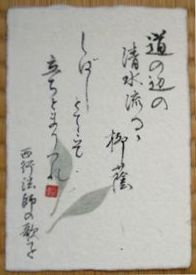 道の辺の
清水流るゝ
柳蔭
しばしとてこそ
立ちとまりつれ
西行法師の歌を